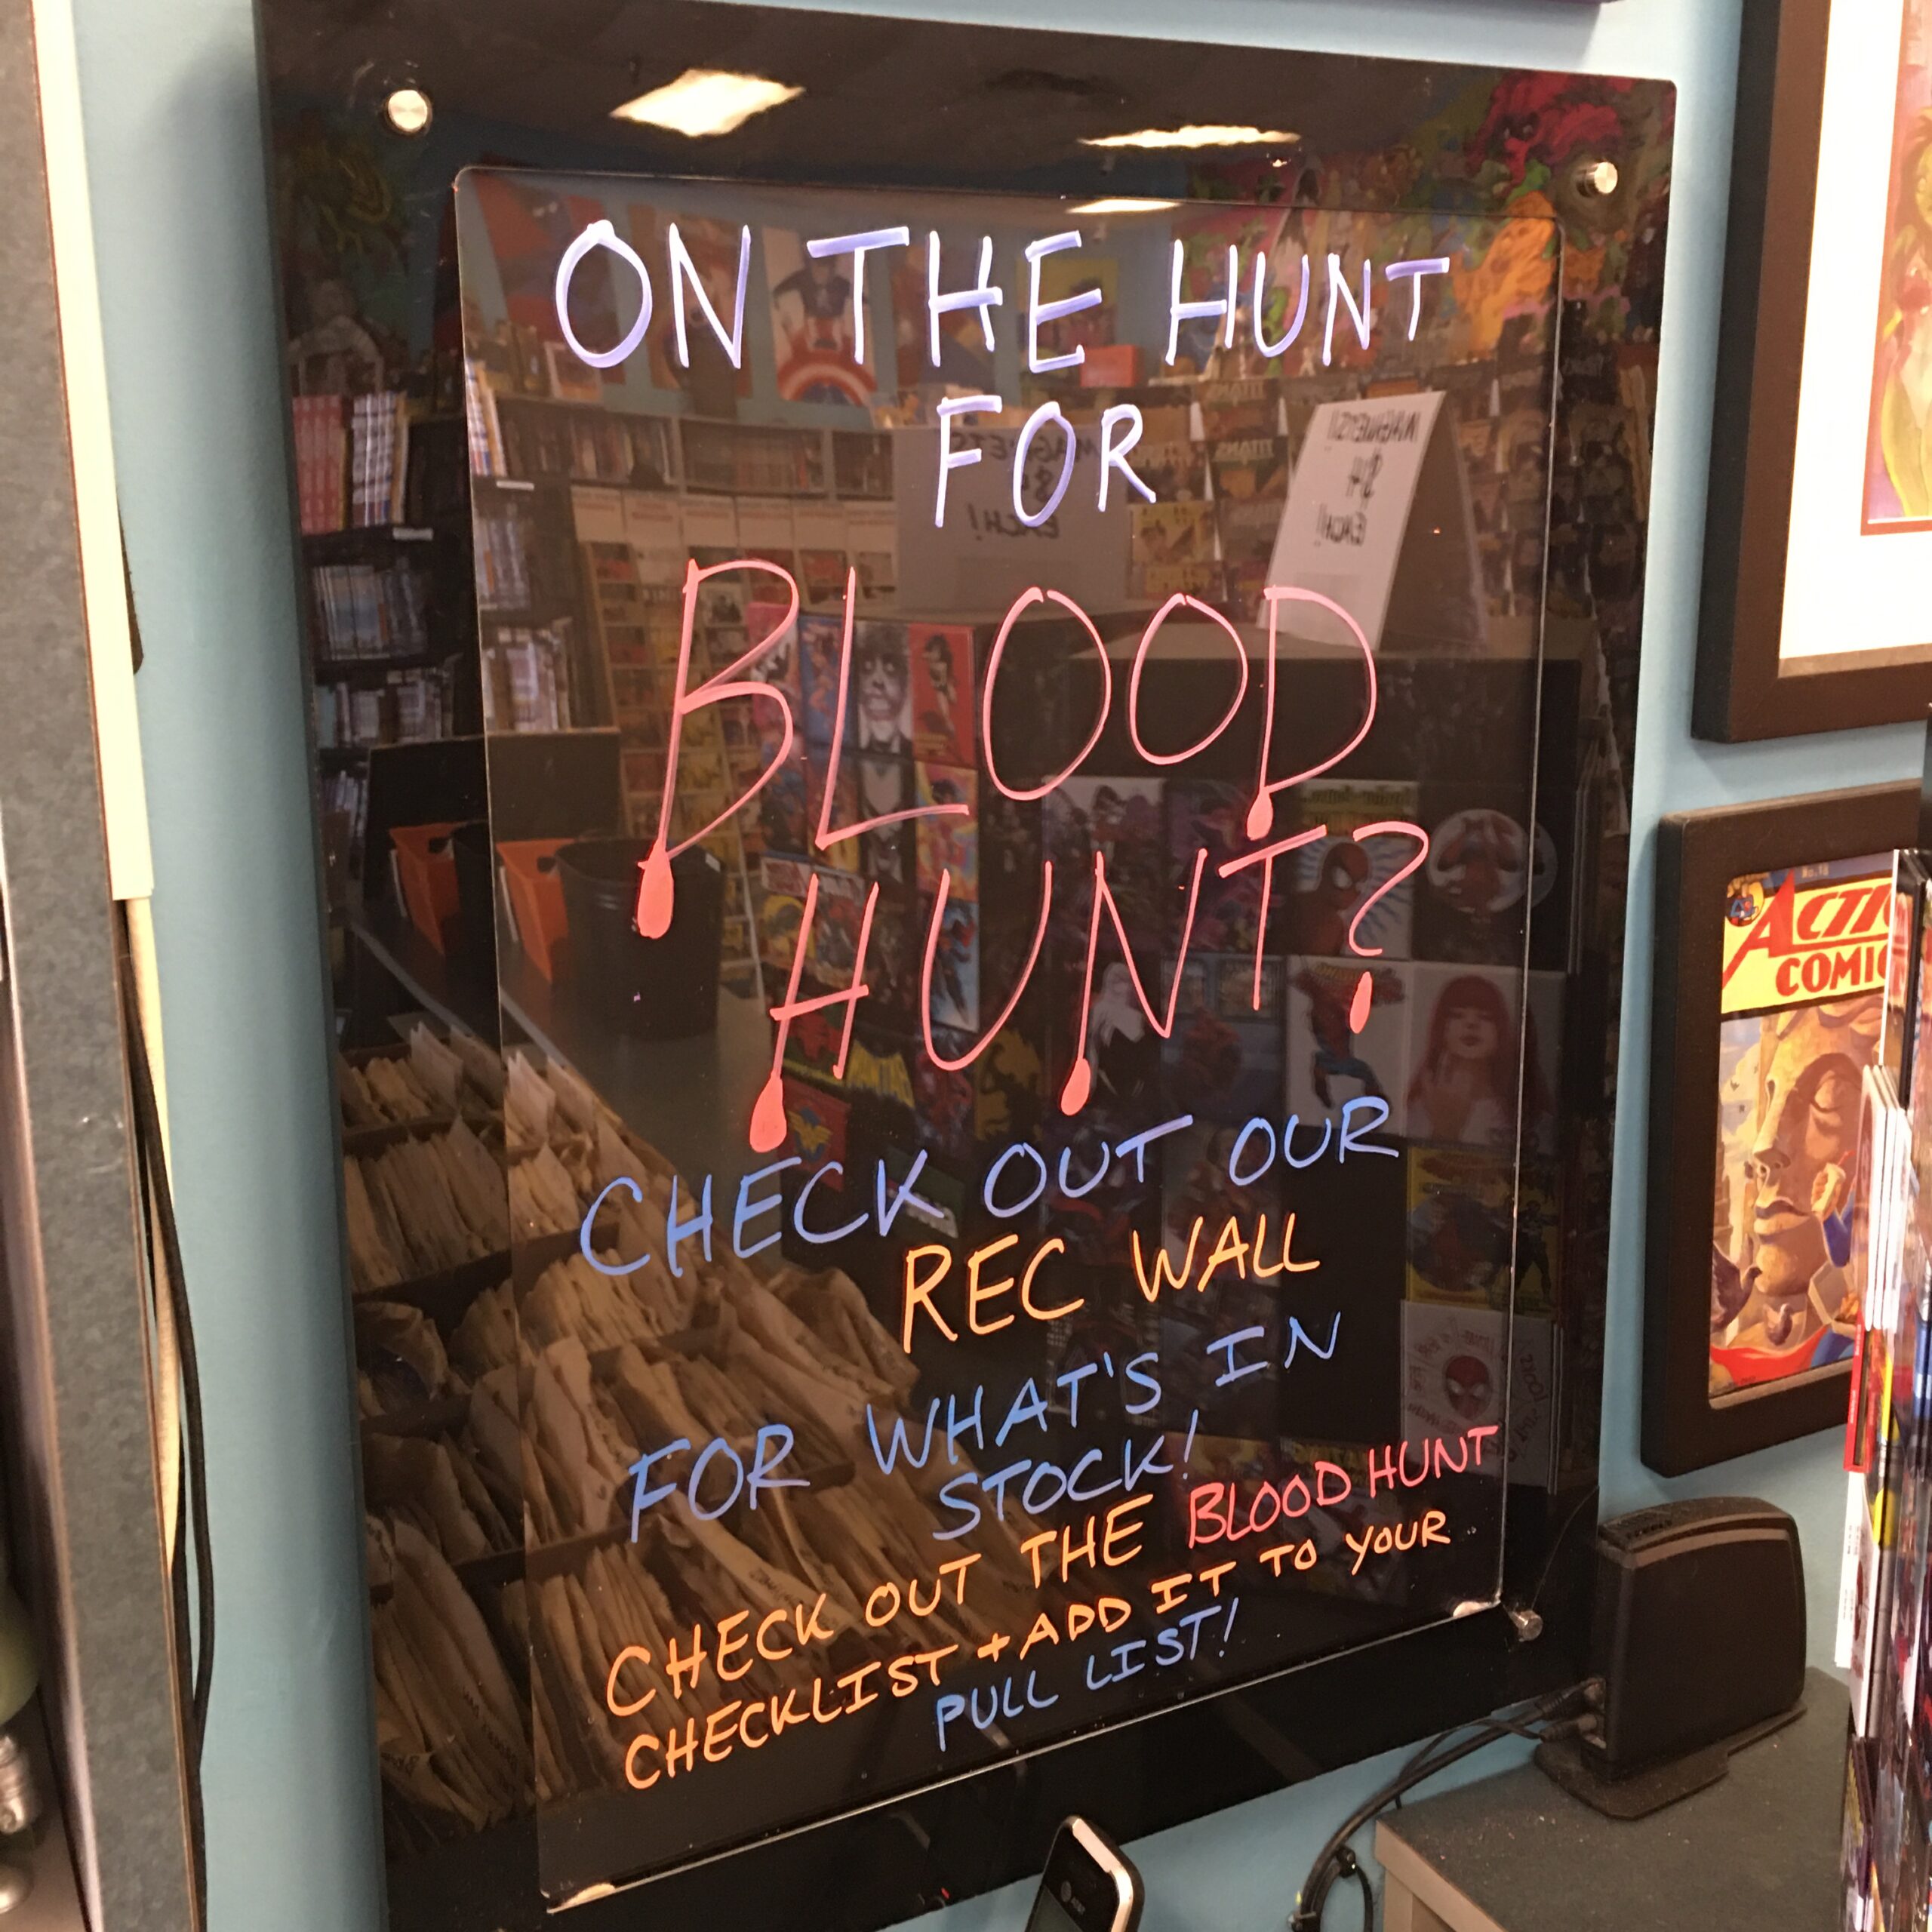 ON THE HUNT
FOR
BLOOD
HUNT?
CHECK OUT OUR
REC WALL
FOR WHAT'S IN
STOCK!
CHECK OUT THE BLOOD HUNT
CHECKLIST + ADD IT TO YOUR
PULL LIST!
MAGNETS!
$4
EACH!
ACTI
COMIC